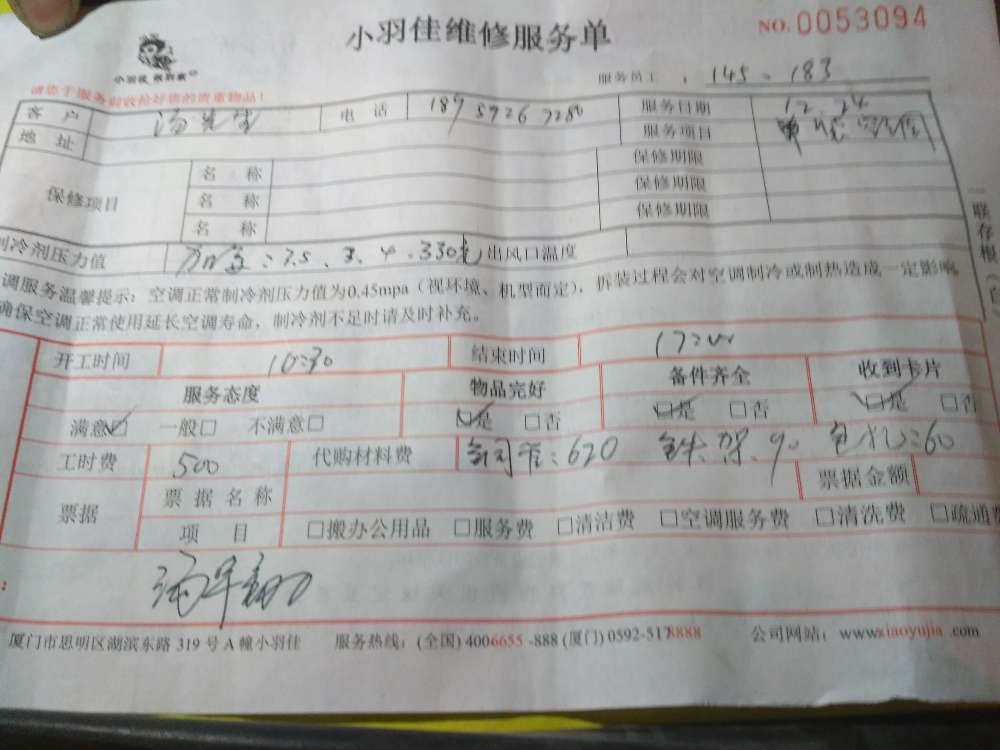 小羽佳维修服务单
NO. 0053094
小羽佳 帮到家
服务员工 145、183
请您于服务前收拾好您的贵重物品!
客户 汤先生 电话 189 5926 7280 服务日期 12.24
地址 服务项目
保修项目 名称 保修期限
名称 保修期限
名称 保修期限
制冷剂压力值 出风口温度
调服务温馨提示：空调正常制冷剂压力值为0.45mpa（视环境、机型而定），拆装过程会对空调制冷或制热造成一定影响
确保空调正常使用延长空调寿命，制冷剂不足时请及时补充。
一联存根（白）
开工时间 10:30 结束时间
服务态度 物品完好 备件齐全 收到卡片
满意☑ 一般□ 不满意□ ☑是 □否 ☑是 □否 ☑是 □否
工时费 500 代购材料费 铜管:620 铁架.90 :60
票据 票据名称 票据金额
项目 □搬办公用品 □服务费 □清洁费 □空调服务费 □清洗费 □疏通费
厦门市思明区湖滨东路 319 号 A 幢小羽佳 服务热线：(全国) 4006655 -888 (厦门) 0592-5178888 公司网站：www.xiaoyujia .com